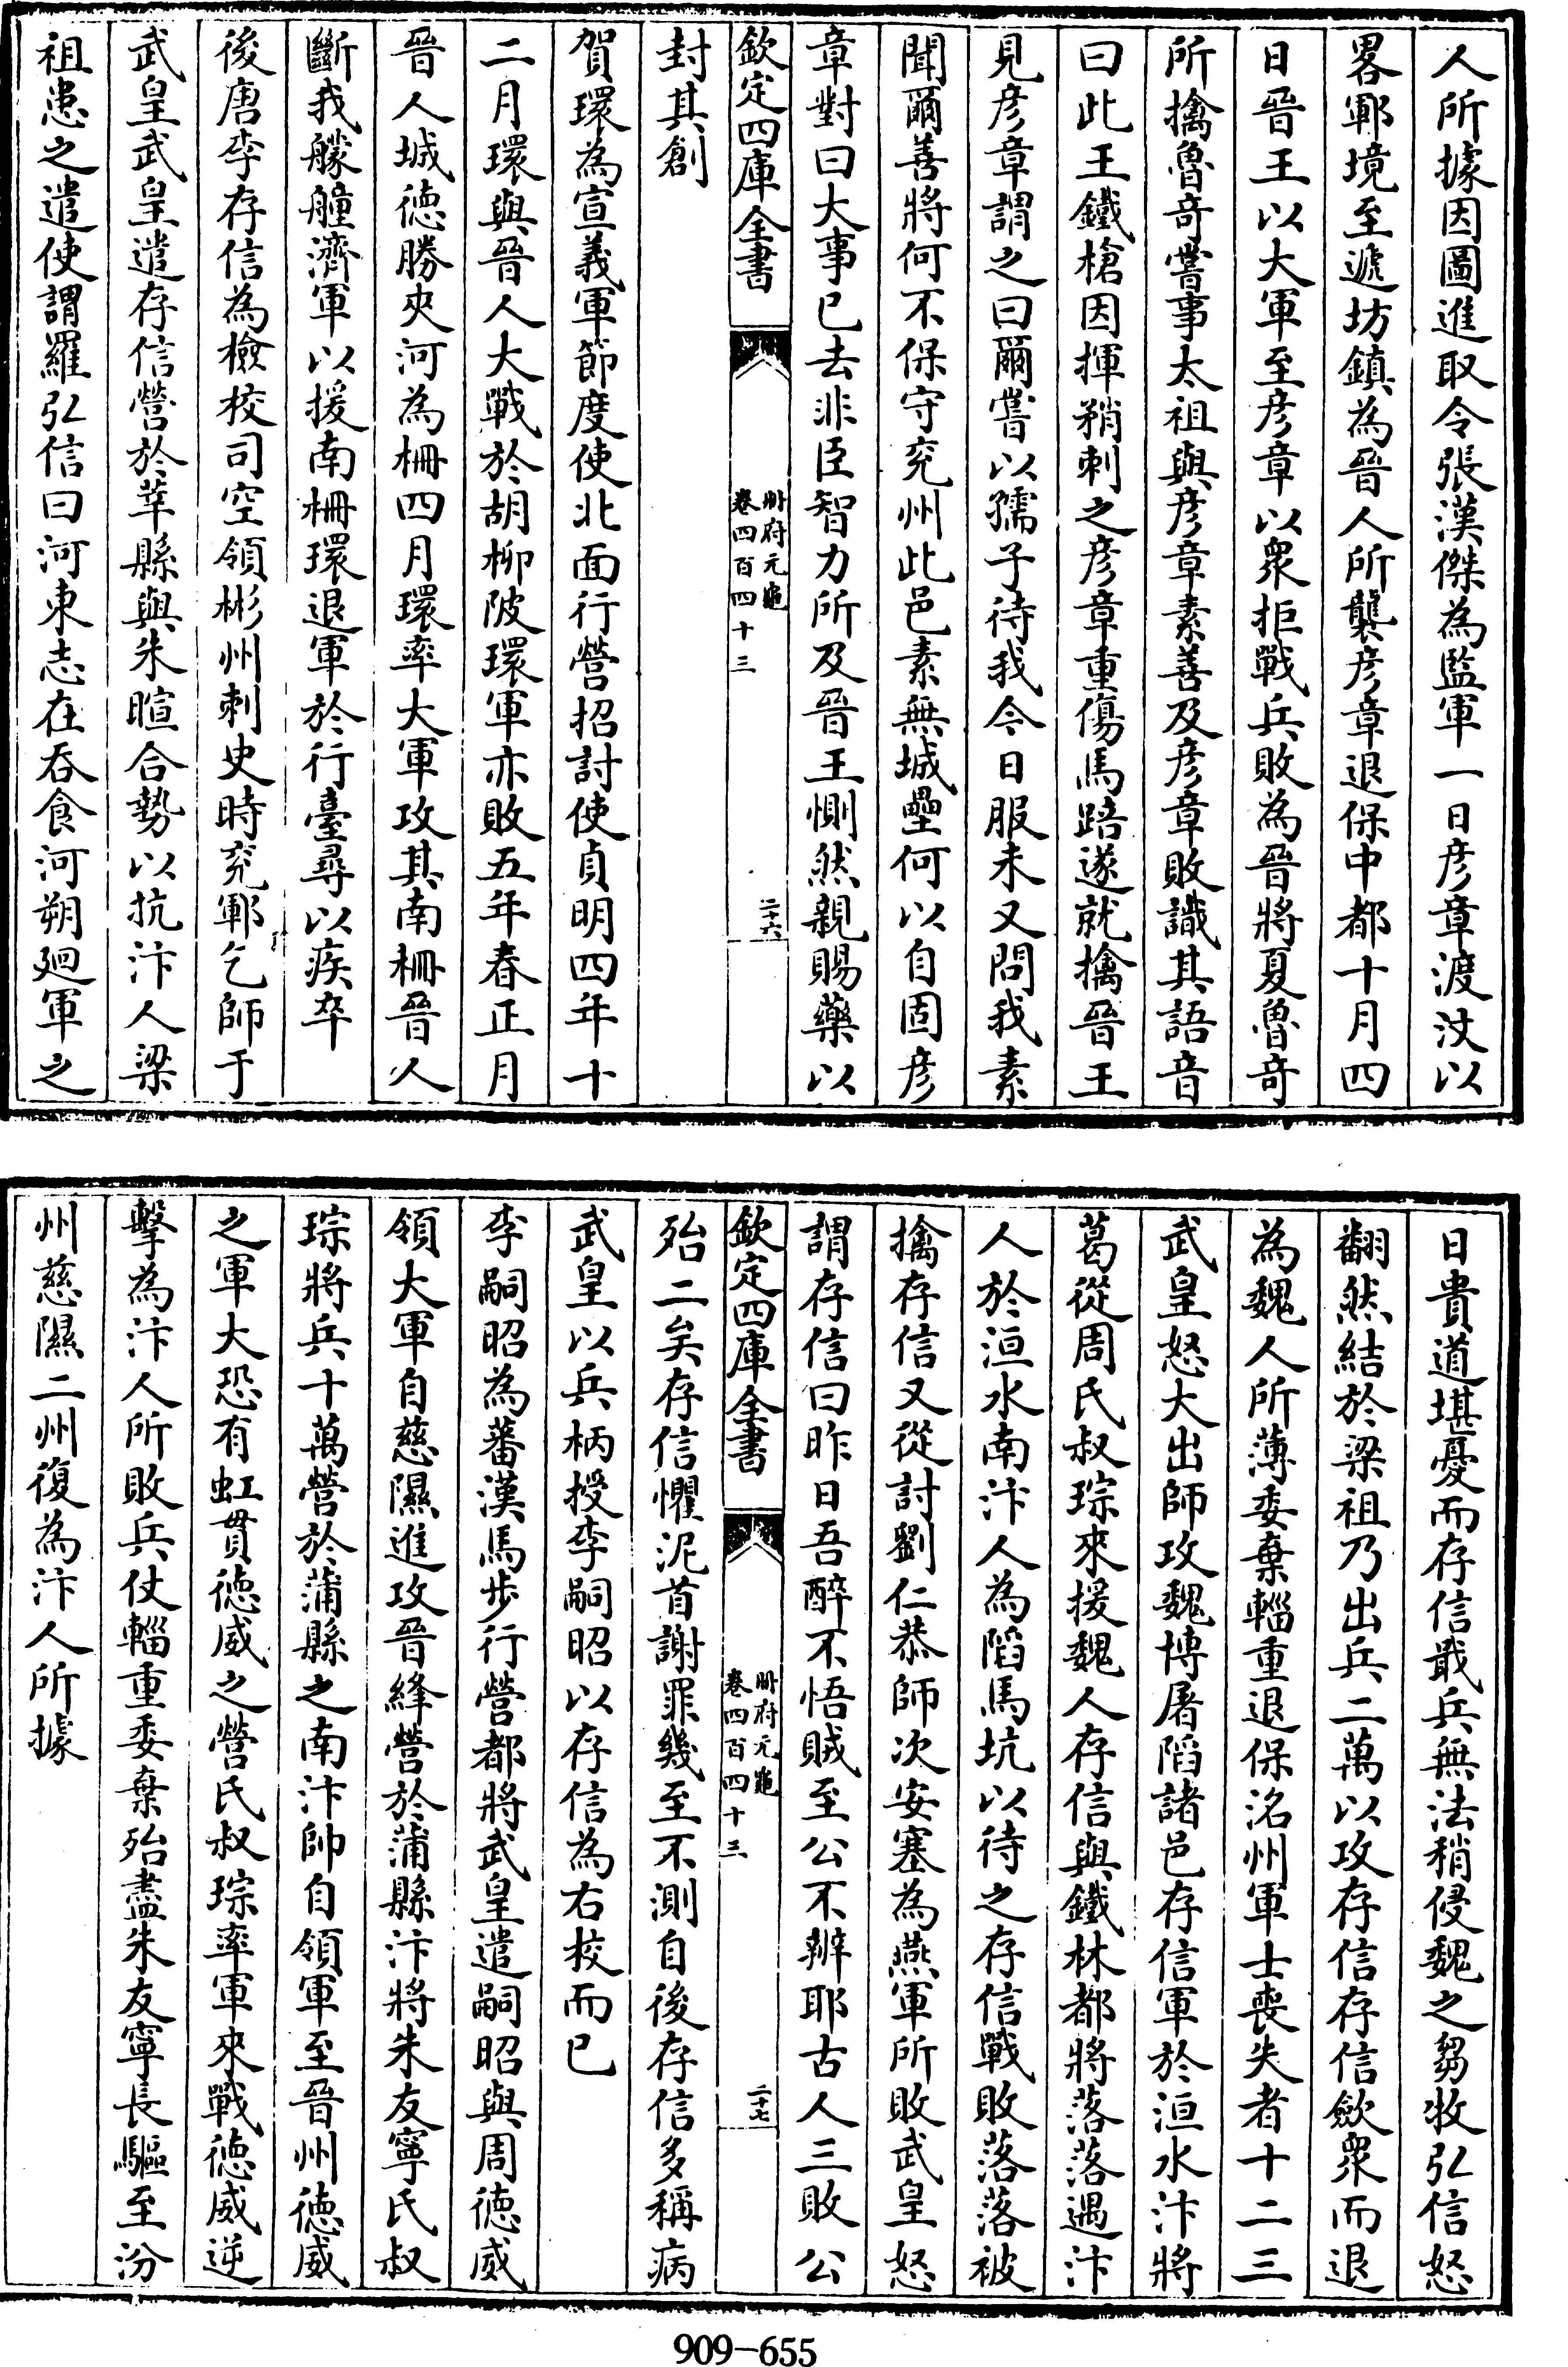 人所據因圖進取令張漢傑為監軍一日彦章渡汶以
畧鄆境至遞坊鎮為晉人所襲彦章退保中都十月四
日晉王以大軍至彦章以衆拒戰兵敗為晉將夏魯奇
所擒魯奇嘗事太祖與彦章素善及彦章敗識其語音
曰此王鐵槍因揮矟刺之彦章重傷馬踣遂就擒晉王
見彦章謂之曰爾嘗以孺子待我今日服未又問我素
聞爾善將何不保守兖州此邑素無城壘何以自固彦
章對曰大事已去非臣智力所及晉王惻然親賜藥以
欽定四庫全書
冊府元龜
卷四百四十三
二十六
封其創
賀瓌為宣義軍節度使北面行營招討使貞明四年十
二月瓌與晉人大戰於胡柳陂瓌軍亦敗五年春正月
晉人城德勝夾河為柵四月瓌率大軍攻其南柵晉人
斷我艨艟濟軍以援南柵瓌退軍於行臺尋以疾卒
後唐李存信為檢校司空領彬州刺史時兖鄆乞師于
武皇武皇遣存信營於莘縣與朱暄合勢以抗汴人梁
祖患之遣使謂羅弘信曰河東志在吞食河朔廻軍之
日貴道堪憂而存信戢兵無法稍侵魏之芻牧弘信怒
翻然結於梁祖乃出兵二萬以攻存信存信歛衆而退
為魏人所薄委棄輜重退保洺州軍士喪失者十二三
武皇怒大出師攻魏博屠陷諸邑存信軍於洹水汴將
葛從周氏叔琮來援魏人存信與鐵林都將落落遇汴
人於洹水南汴人為陷馬坑以待之存信戰敗落落被
擒存信又從討劉仁恭師次安塞為燕軍所敗武皇怒
謂存信曰昨日吾醉不悟賊至公不辨耶古人三敗公
欽定四庫全書
冊府元龜
卷四百四十三
二十七
殆二矣存信懼泥首謝罪幾至不測自後存信多稱病
武皇以兵柄授李嗣昭以存信為右校而已
李嗣昭為蕃漢馬步行營都將武皇遣嗣昭與周德威
領大軍自慈隰進攻晉絳營於蒲縣汴將朱友寧氏叔
琮將兵十萬營於蒲縣之南汴帥自領軍至晉州德威
之軍大恐有虹貫德威之營氏叔琮率軍來戰德威逆
擊為汴人所敗兵仗輜重委棄殆盡朱友寧長驅至汾
州慈隰二州復為汴人所據
909-655